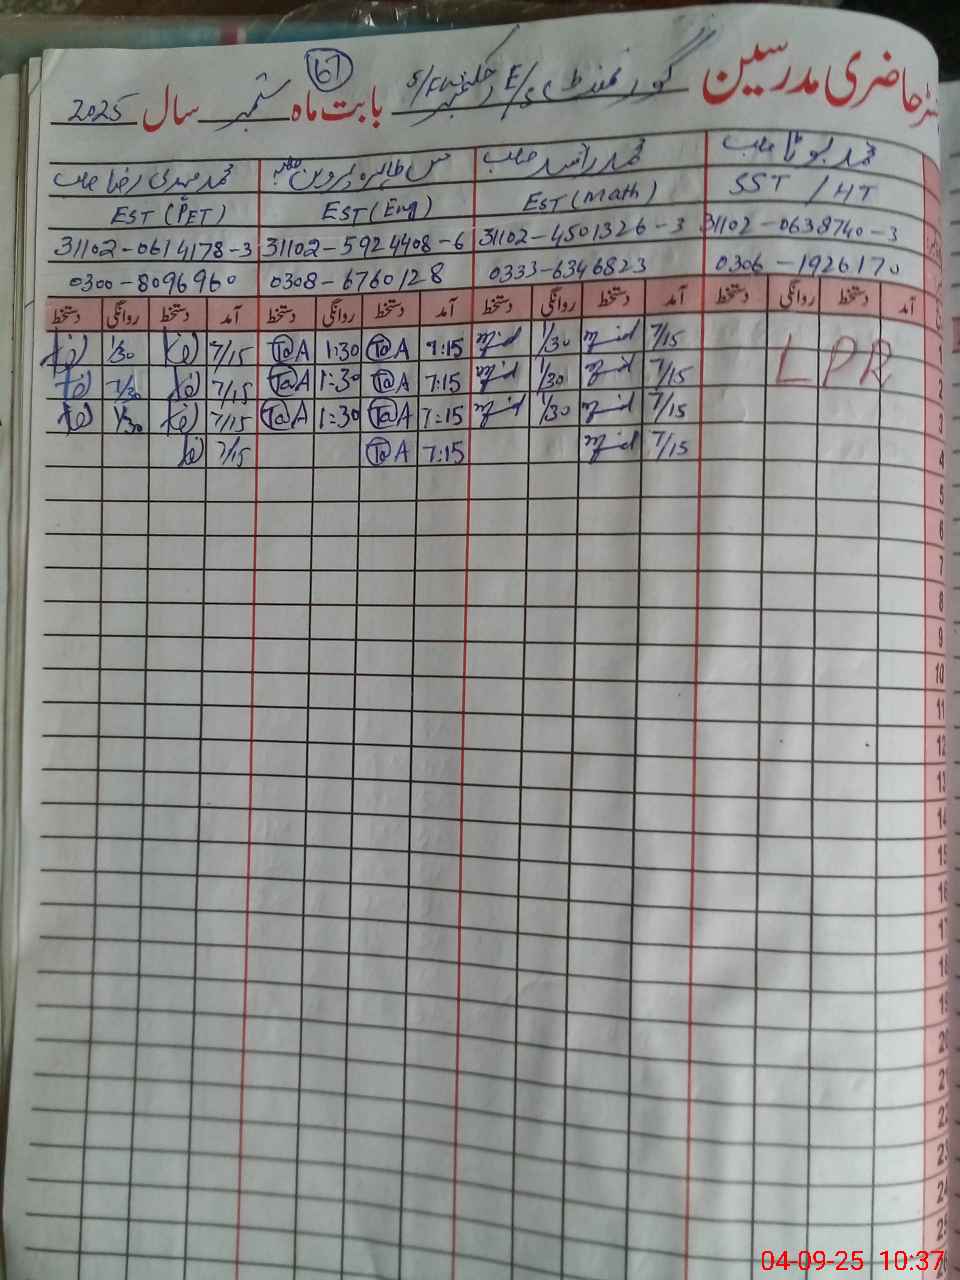 رجسٹر حاضری مدرسین گورنمنٹ E/S بابت ماہ ستمبر سال 2025
67
محمد بوٹا صاحب محمد راشد صاحب مس طاہرہ پروین صاحبہ محمد مہدی رضا صاحب
SST / HT EST (Math) EST (Eng) EST (PET)
31102-0638740-3 31102-4501326-3 31102-5924408-6 31102-0614178-3
0306-1926170 0333-6346823 0308-6760128 0300-8096960
آمد دستخط روانگی دستخط آمد دستخط روانگی دستخط آمد دستخط روانگی دستخط آمد دستخط روانگی دستخط
1 LPR 7/15 1/30 7:15 TaA 1:30 TaA 7/15 1/30
2 7/15 1/30 7:15 TaA 1:30 TaA 7/15 1/30
3 7/15 1/30 7:15 TaA 1:30 TaA 7/15 1/30
4 7/15 7:15 TaA 7/15
5
6
7
8
9
10
11
12
13
14
15
16
17
18
19
20
21
22
23
24
25
04-09-25 10:37